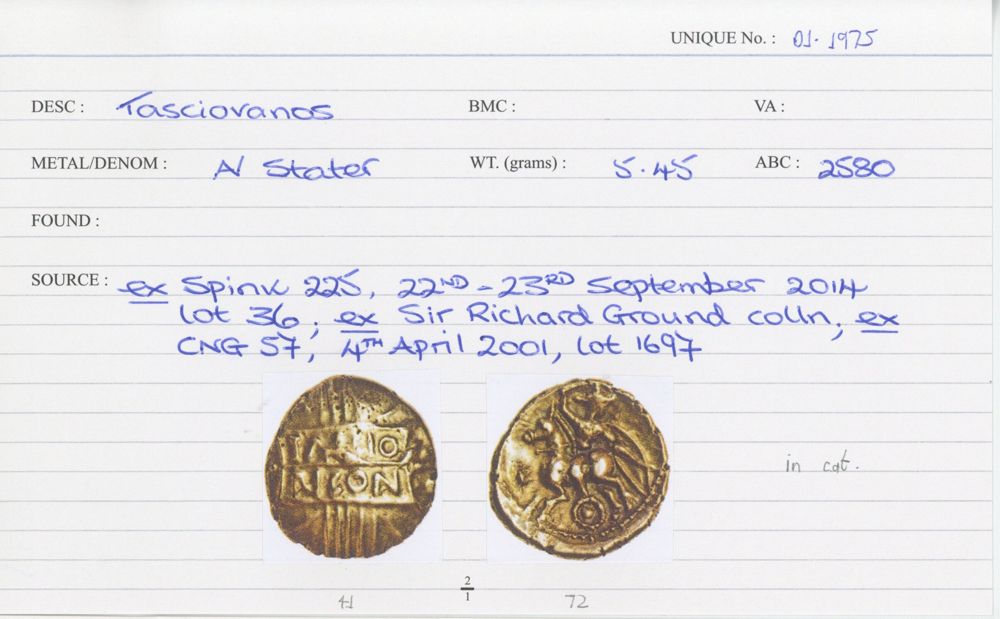 UNIQUE No. : 01. 1975
DESC : Tasciovanos BMC : VA :
METAL/DENOM : AV Stater WT. (grams) : 5.45 ABC : 2580
FOUND :
SOURCE : ex Spink 225, 22ND - 23RD September 2014
lot 36; ex Sir Richard Ground colln, ex
CNG 57, 4TH April 2001, lot 1697
in cat.
2/1
41 72